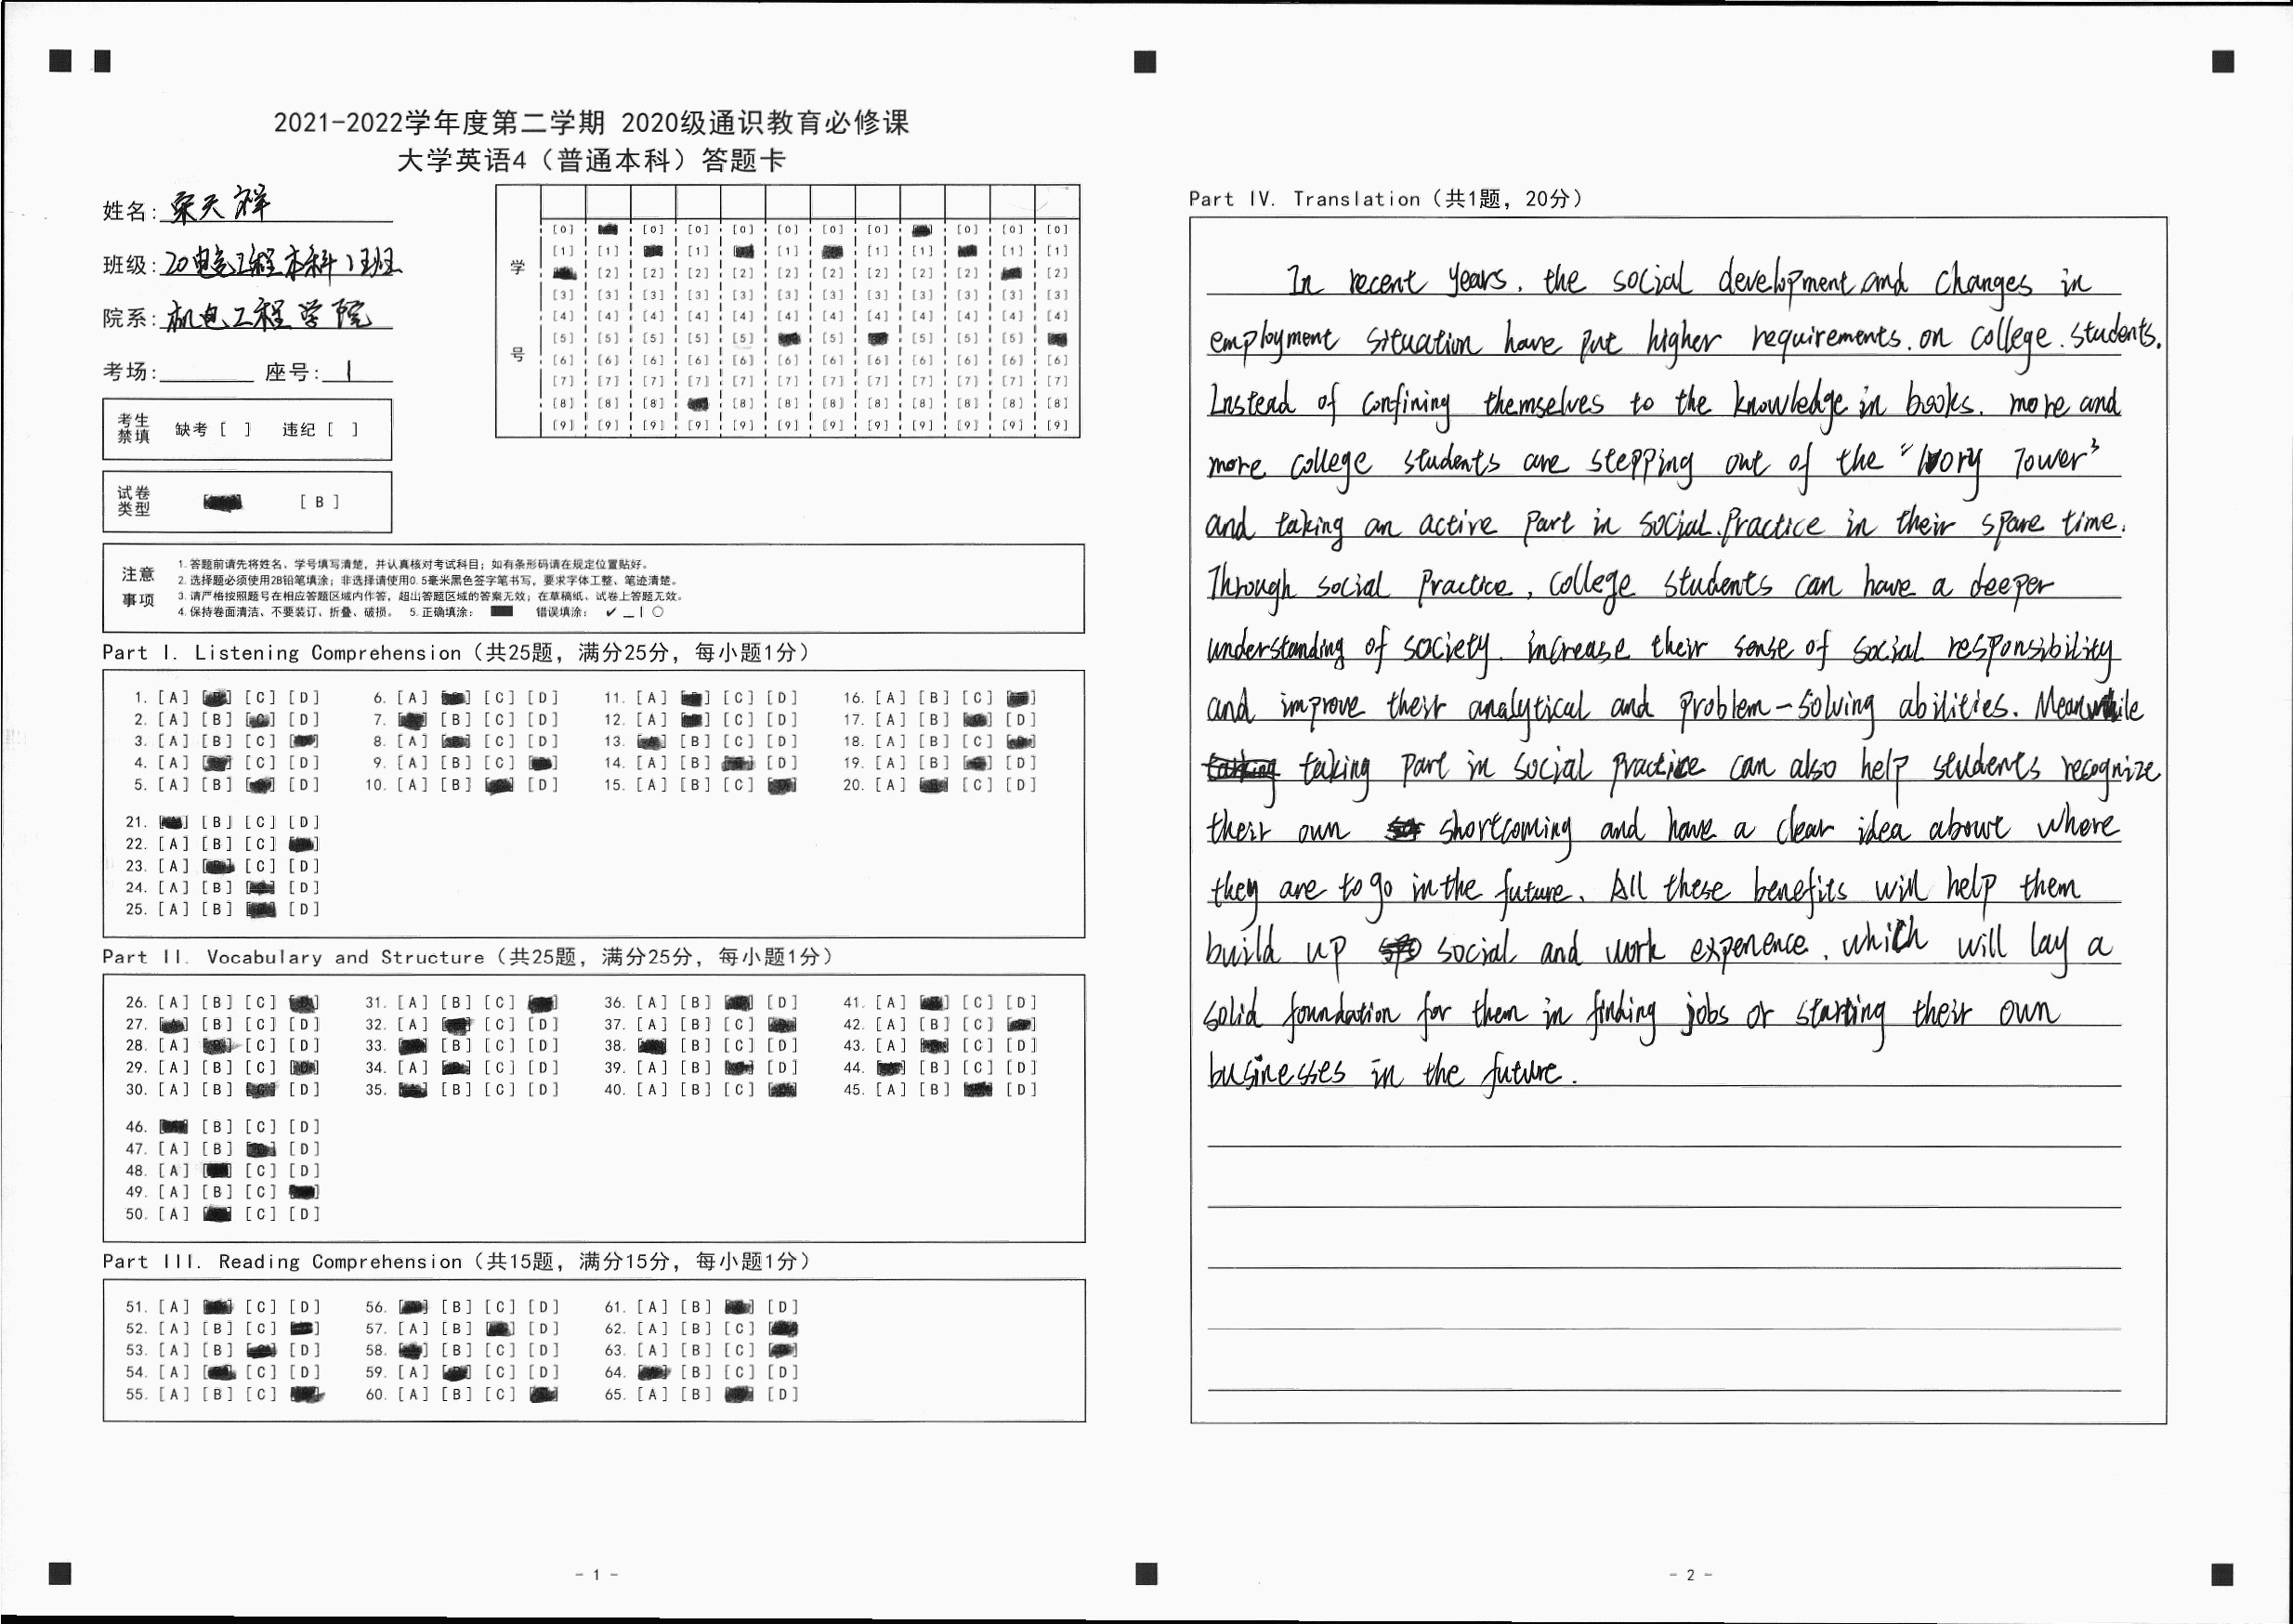 2021-2022学年度第二学期 2020级通识教育必修课
大学英语4（普通本科）答题卡
姓名: 栾天祥
班级: 20电气工程本科1班
院系: 机电工程学院
考场: 座号: 1
考生禁填 缺考 [ ] 违纪 [ ]
试卷类型 [ B ]
学号
[0] [0] [0] [0] [0] [0] [0] [0] [0] [0]
[1] [1] [1] [1] [1] [1] [1] [1]
[2] [2] [2] [2] [2] [2] [2] [2] [2] [2]
[3] [3] [3] [3] [3] [3] [3] [3] [3] [3] [3] [3]
[4] [4] [4] [4] [4] [4] [4] [4] [4] [4] [4] [4]
[5] [5] [5] [5] [5] [5] [5] [5] [5]
[6] [6] [6] [6] [6] [6] [6] [6] [6] [6] [6] [6]
[7] [7] [7] [7] [7] [7] [7] [7] [7] [7] [7] [7]
[8] [8] [8] [8] [8] [8] [8] [8] [8] [8] [8]
[9] [9] [9] [9] [9] [9] [9] [9] [9] [9] [9] [9]
注意事项
1.答题前请先将姓名、学号填写清楚，并认真核对考试科目；如有条形码请在规定位置贴好。
2.选择题必须使用2B铅笔填涂；非选择请使用0.5毫米黑色签字笔书写，要求字体工整、笔迹清楚。
3.请严格按照题号在相应答题区域内作答，超出答题区域的答案无效；在草稿纸、试卷上答题无效。
4.保持卷面清洁、不要装订、折叠、破损。 5.正确填涂： 错误填涂：
Part I. Listening Comprehension（共25题, 满分25分, 每小题1分）
1. [A] [C] [D] 6. [A] [C] [D] 11. [A] [C] [D] 16. [A] [B] [C]
2. [A] [B] [D] 7. [B] [C] [D] 12. [A] [C] [D] 17. [A] [B] [D]
3. [A] [B] [C] 8. [A] [C] [D] 13. [B] [C] [D] 18. [A] [B] [C]
4. [A] [C] [D] 9. [A] [B] [C] 14. [A] [B] [D] 19. [A] [B] [D]
5. [A] [B] [D] 10. [A] [B] [D] 15. [A] [B] [C] 20. [A] [C] [D]
21. [B] [C] [D]
22. [A] [B] [C]
23. [A] [C] [D]
24. [A] [B] [D]
25. [A] [B] [D]
Part II. Vocabulary and Structure（共25题, 满分25分, 每小题1分）
26. [A] [B] [C] 31. [A] [B] [C] 36. [A] [B] [D] 41. [A] [C] [D]
27. [B] [C] [D] 32. [A] [C] [D] 37. [A] [B] [C] 42. [A] [B] [C]
28. [A] [C] [D] 33. [B] [C] [D] 38. [B] [C] [D] 43. [A] [C] [D]
29. [A] [B] [C] 34. [A] [C] [D] 39. [A] [B] [D] 44. [B] [C] [D]
30. [A] [B] [D] 35. [B] [C] [D] 40. [A] [B] [C] 45. [A] [B] [D]
46. [B] [C] [D]
47. [A] [B] [D]
48. [A] [C] [D]
49. [A] [B] [C]
50. [A] [C] [D]
Part III. Reading Comprehension（共15题, 满分15分, 每小题1分）
51. [A] [C] [D] 56. [B] [C] [D] 61. [A] [B] [D]
52. [A] [B] [C] 57. [A] [B] [D] 62. [A] [B] [C]
53. [A] [B] [D] 58. [B] [C] [D] 63. [A] [B] [C]
54. [A] [C] [D] 59. [A] [C] [D] 64. [B] [C] [D]
55. [A] [B] [C] 60. [A] [B] [C] 65. [A] [B] [D]
- 1 -
Part IV. Translation（共1题, 20分）
In recent years, the social development and changes in
employment situation have put higher requirements on college students.
Instead of confining themselves to the knowledge in books, more and
more college students are stepping out of the "Ivory Tower"
and taking an active part in social practice in their spare time.
Through social practice, college students can have a deeper
understanding of society, increase their sense of social responsibility
and improve their analytical and problem-solving abilities. Meanwhile
taking part in social practice can also help students recognize
their own shortcoming and have a clear idea about where
they are to go in the future. All these benefits will help them
build up social and work experience, which will lay a
solid foundation for them in finding jobs or starting their own
businesses in the future.
- 2 -